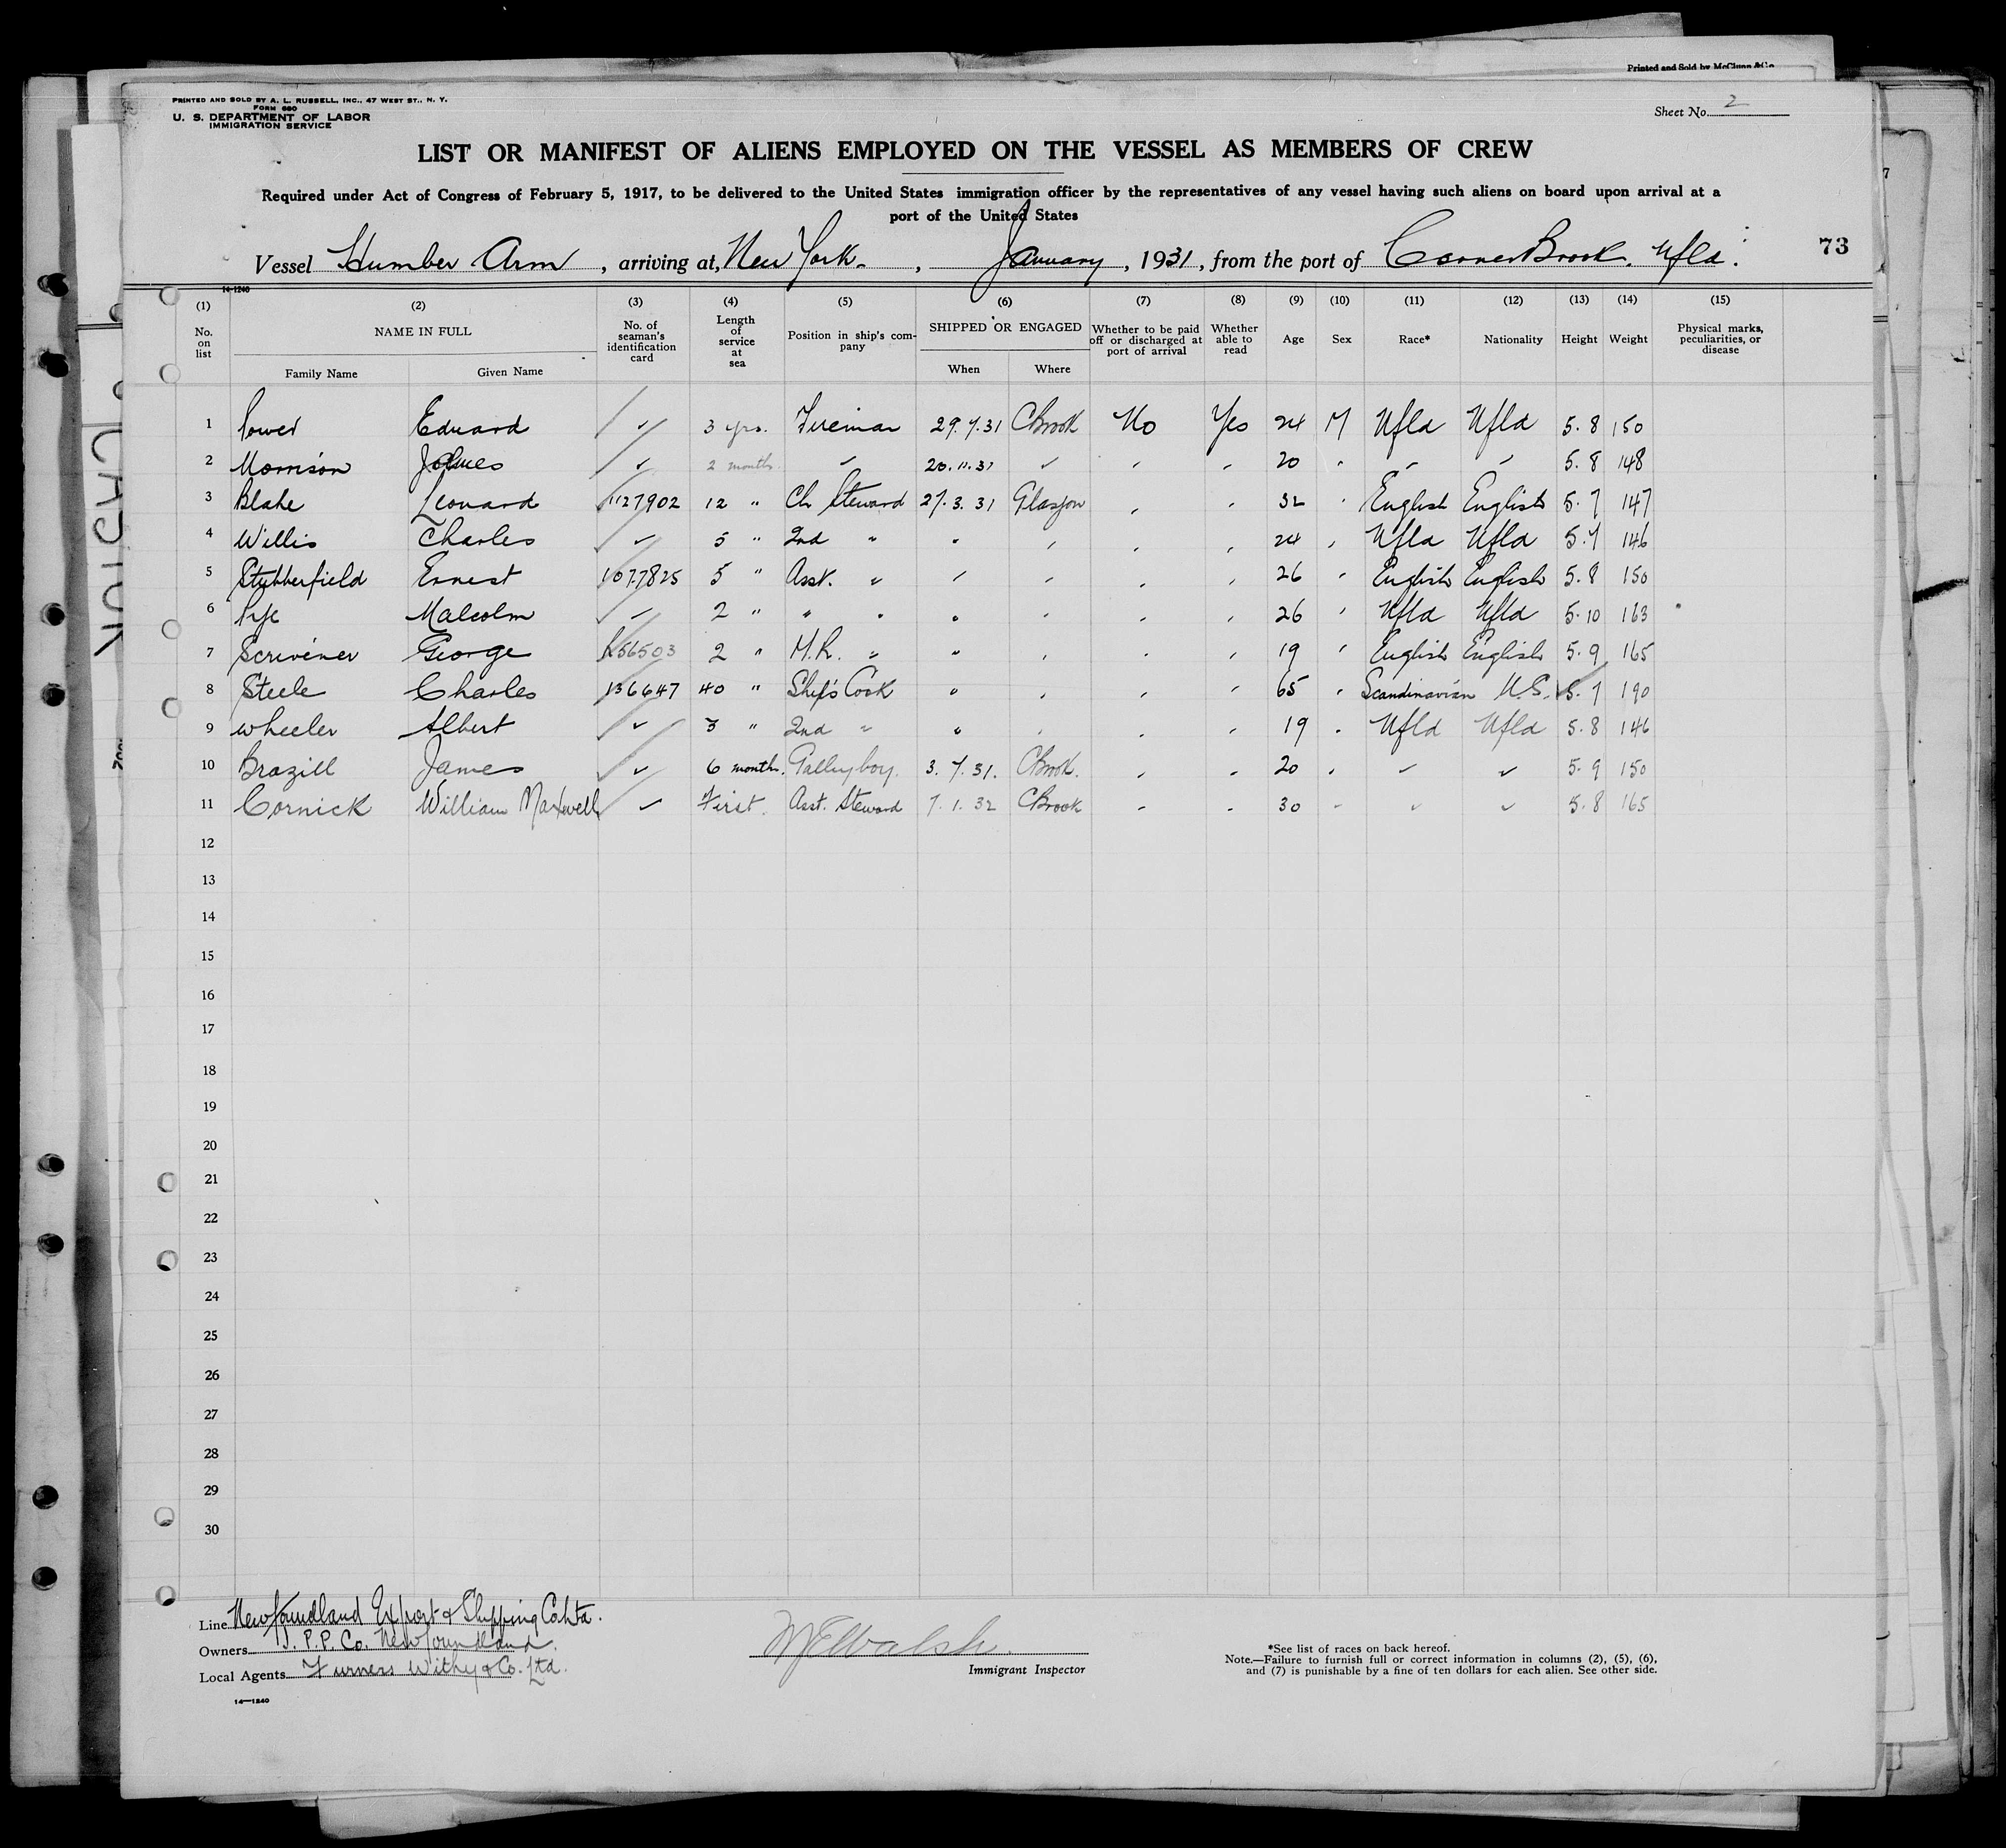 Printed and Sold by McClunn & Co
PRINTED AND SOLD BY A. L. RUSSELL, INC., 47 WEST ST., N. Y.
FORM 680
U. S. DEPARTMENT OF LABOR
IMMIGRATION SERVICE
Sheet No. 2
LIST OR MANIFEST OF ALIENS EMPLOYED ON THE VESSEL AS MEMBERS OF CREW
Required under Act of Congress of February 5, 1917, to be delivered to the United States immigration officer by the representatives of any vessel having such aliens on board upon arrival at a
port of the United States
Vessel Humber Arm, arriving at, New York, January, 1931, from the port of Corner Brook. Nfld.
73
14-1240
(1) (2) (3) (4) (5) (6) (7) (8) (9) (10) (11) (12) (13) (14) (15)
No. on list NAME IN FULL Family Name Given Name No. of seaman's identification card Length of service at sea Position in ship's company SHIPPED OR ENGAGED When Where Whether to be paid off or discharged at port of arrival Whether able to read Age Sex Race* Nationality Height Weight Physical marks, peculiarities, or disease
1 Power Edward ✓ 3 yrs. Fireman 29.7.31 CBrook No Yes 24 M Nfld Nfld 5.8 150
2 Morrison James ✓ 2 months ✓ 20.11.31 ✓ " " 20 " " " 5.8 148
3 Blake Leonard 1127902 12 " Ch Steward 27.3.31 Glasgow " " 32 " English English 5.7 147
4 Willis Charles ✓ 5 " 2nd " " " " " 24 " Nfld Nfld 5.7 146
5 Stubberfield Ernest 1077825 5 " Asst. " " " " " 26 " English English 5.8 150
6 Pye Malcolm ✓ 2 " " " " " " " 26 " Nfld Nfld 5.10 163
7 Scrivener George 56503 2 " M.R. " " " " " 19 " English English 5.9 165
8 Steele Charles 136647 40 " Ship's Cook " " " " 65 " Scandinavian U.S. 5.7 190
9 Wheeler Albert ✓ 3 " 2nd " " " " " 19 " Nfld Nfld 5.8 146
10 Brazill James ✓ 6 months. Galley boy. 3.7.31. CBrook. " " 20 " ✓ ✓ 5.9 150
11 Cornick William Maxwell ✓ First. Asst. Steward 7.1.32 CBrook " " 30 " ✓ ✓ 5.8 165
12
13
14
15
16
17
18
19
20
21
22
23
24
25
26
27
28
29
30
Line Newfoundland Export & Shipping Co Ltd.
Owners P.P. Co. Newfoundland.
Local Agents Furness Withy & Co. Ltd.
14—1240
Walsh.
Immigrant Inspector
*See list of races on back hereof.
Note.—Failure to furnish full or correct information in columns (2), (5), (6),
and (7) is punishable by a fine of ten dollars for each alien. See other side.